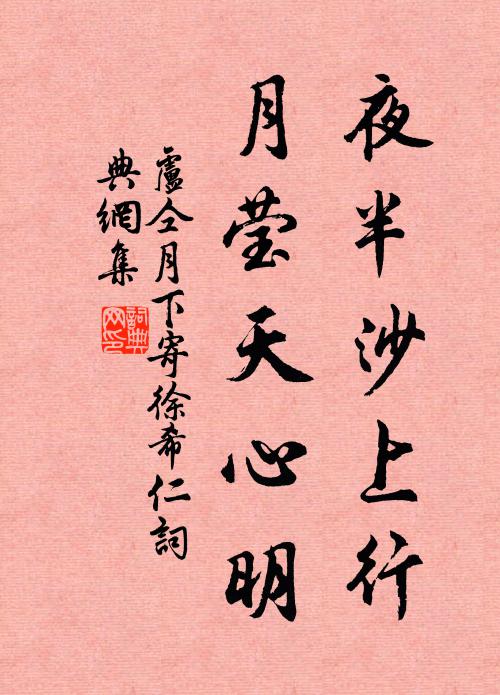 夜半沙上行
月莹天心明
盧仝月下寄徐希仁詞
典網集
詞典
网印